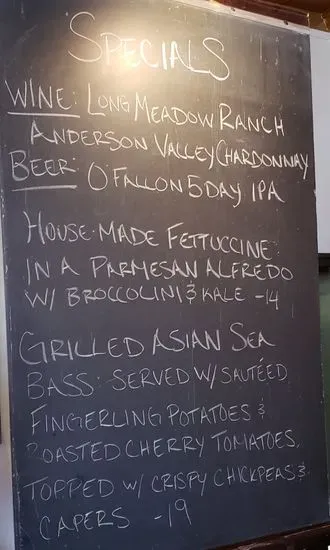 SPECIALS
WINE: LONG MEADOW RANCH
ANDERSON VALLEY CHARDONNAY
BEER: O'FALLON 5 DAY IPA
HOUSE-MADE FETTUCCINE:
IN A PARMESAN ALFREDO
W/ BROCCOLINI & KALE -14
GRILLED ASIAN SEA
BASS: SERVED W/ SAUTÉED
FINGERLING POTATOES &
ROASTED CHERRY TOMATOES,
TOPPED W/ CRISPY CHICKPEAS &
CAPERS -19